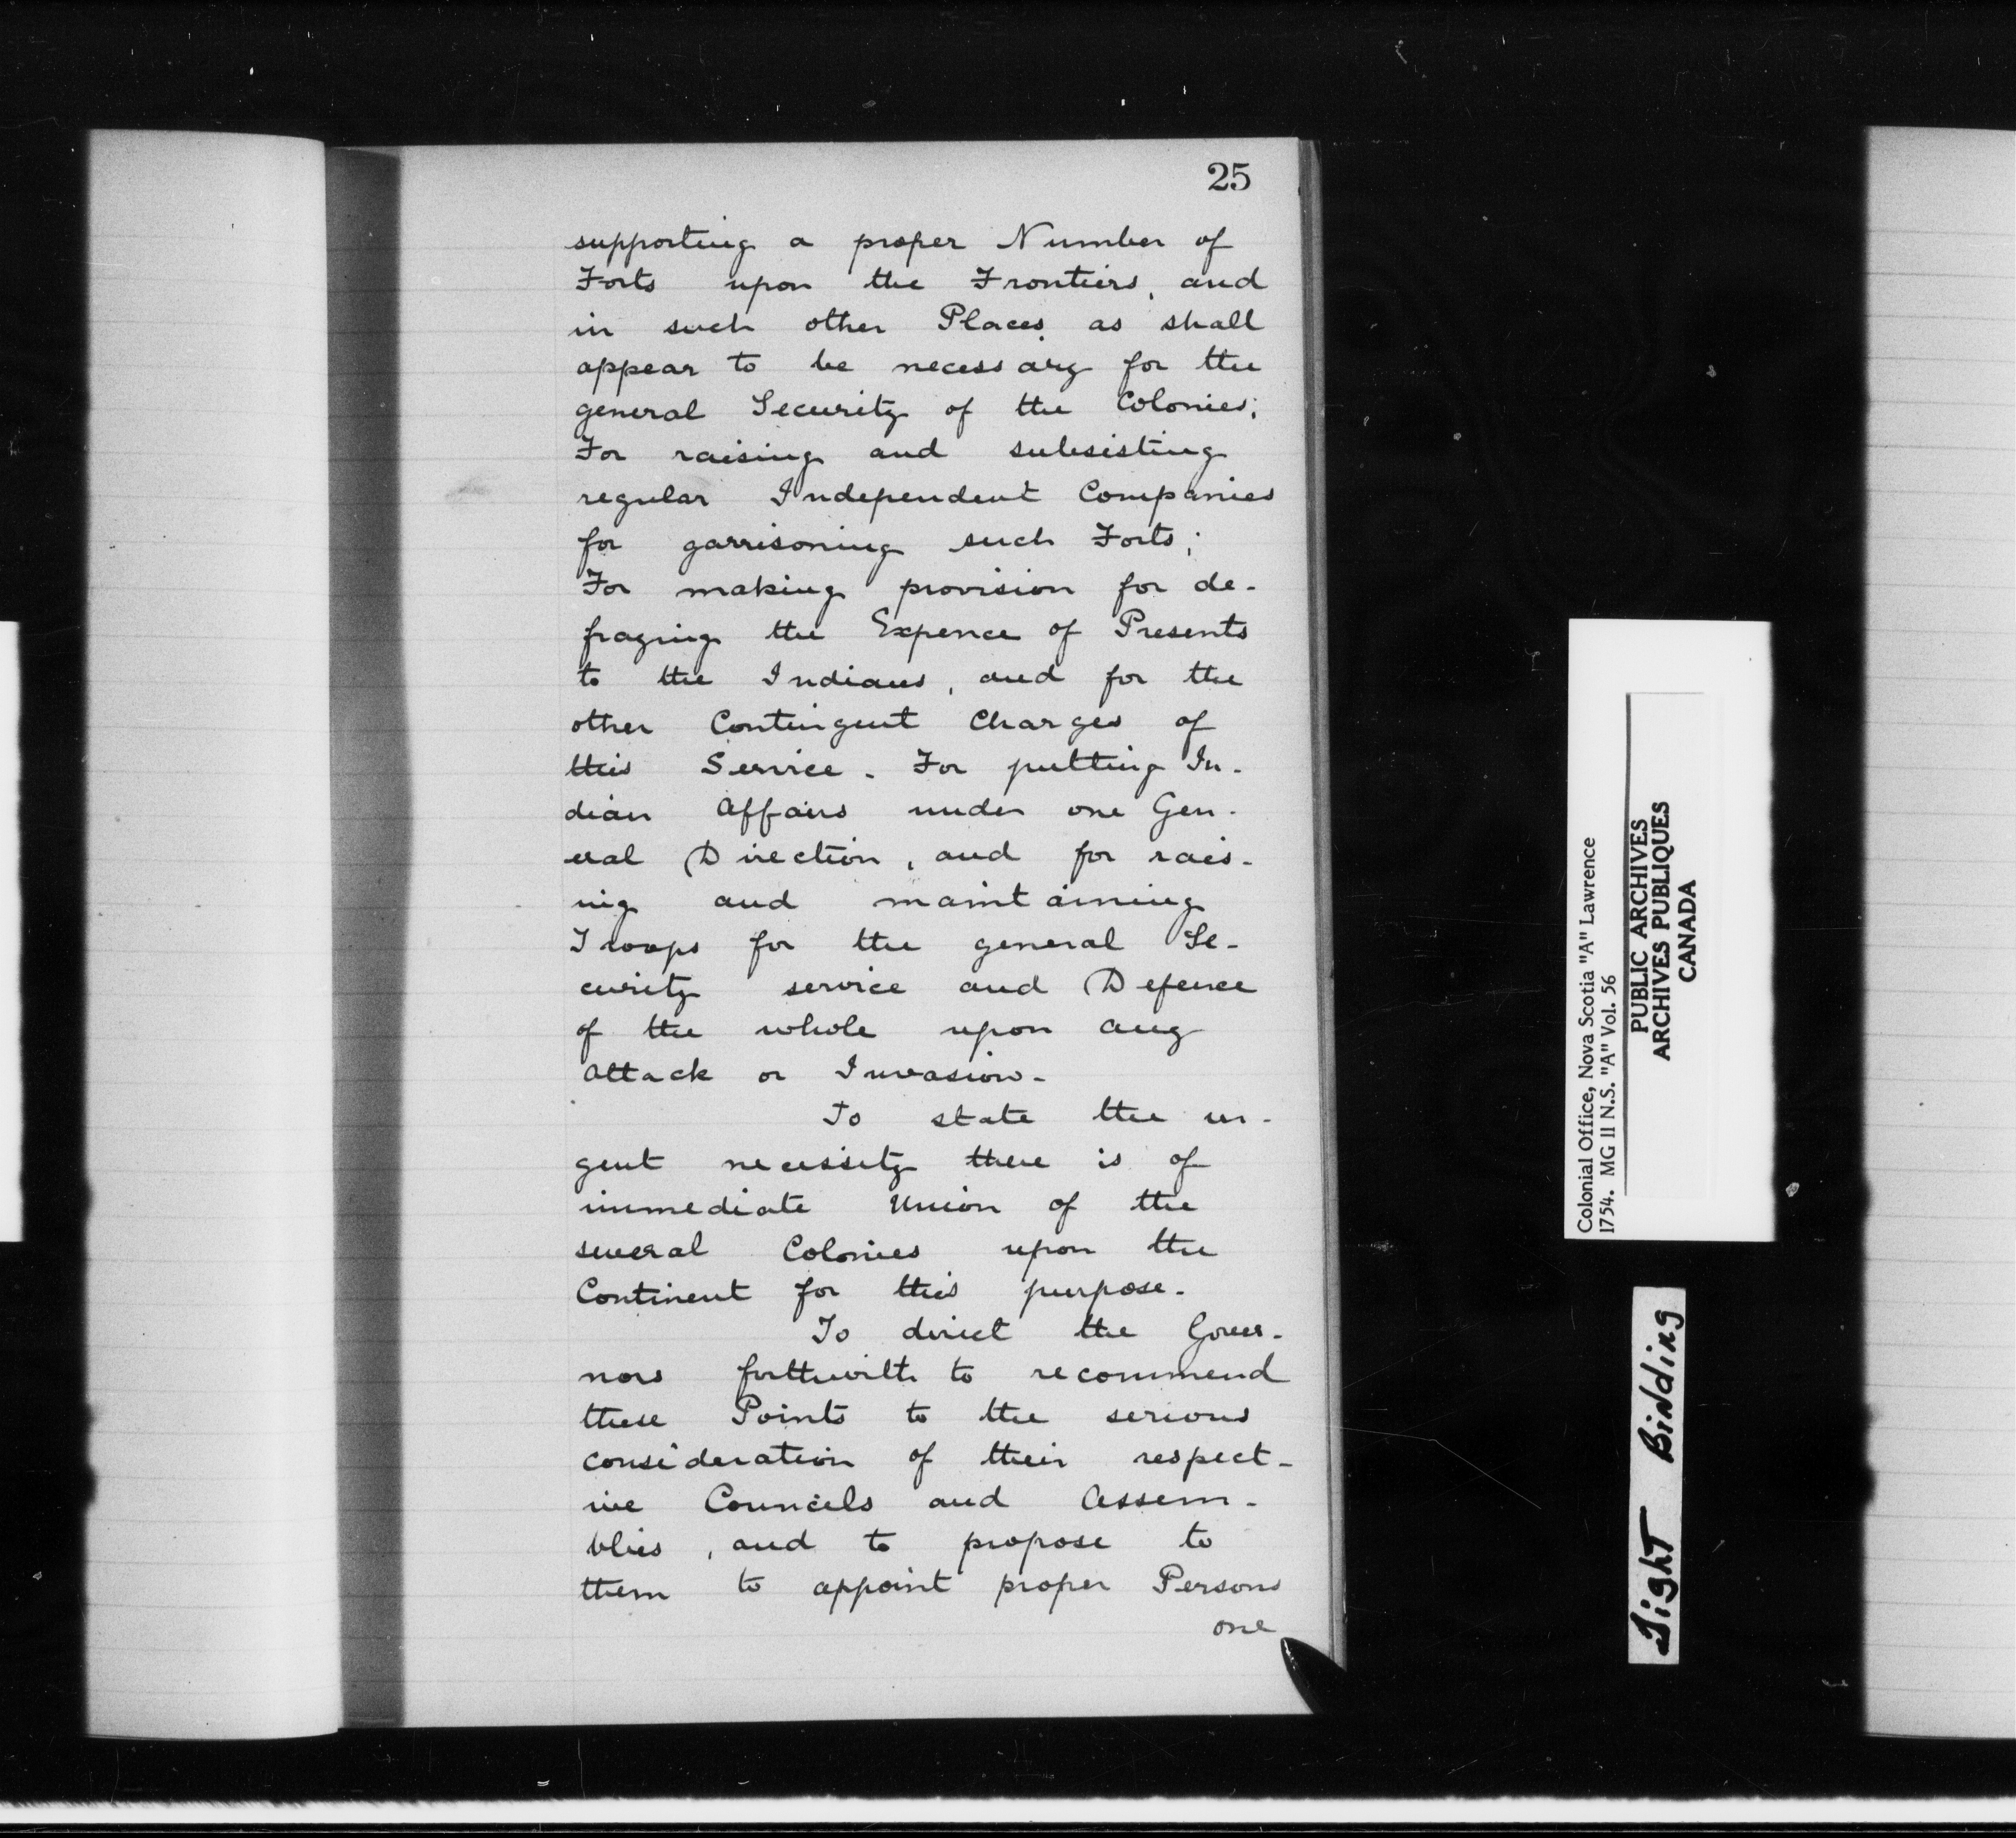 25
supporting a proper Number of
Forts upon the Frontiers, and
in such other Places as shall
appear to be necessary for the
general Security of the Colonies;
For raising and subsisting
regular Independent Companies
for garrisoning such Forts;
For making provision for de-
fraying the Expence of Presents
to the Indians, and for the
other Contingent Charges of
this Service. For putting In-
dian Affairs under one Gen-
eral Direction, and for rais-
ing and maintaining
Troops for the general Se-
curity service and Defence
of the whole upon any
Attack or Invasion.
To state the ur-
gent necessity there is of
immediate Union of the
several Colonies upon the
Continent for this purpose.
To direct the Gover-
nors forthwith to recommend
these Points to the serious
consideration of their respect-
ive Councils and Assem-
blies, and to propose to
them to appoint proper Persons
one
Colonial Office, Nova Scotia "A" Lawrence
1754. MG 11 N.S. "A" Vol. 56
PUBLIC ARCHIVES
ARCHIVES PUBLIQUES
CANADA
Tight Binding